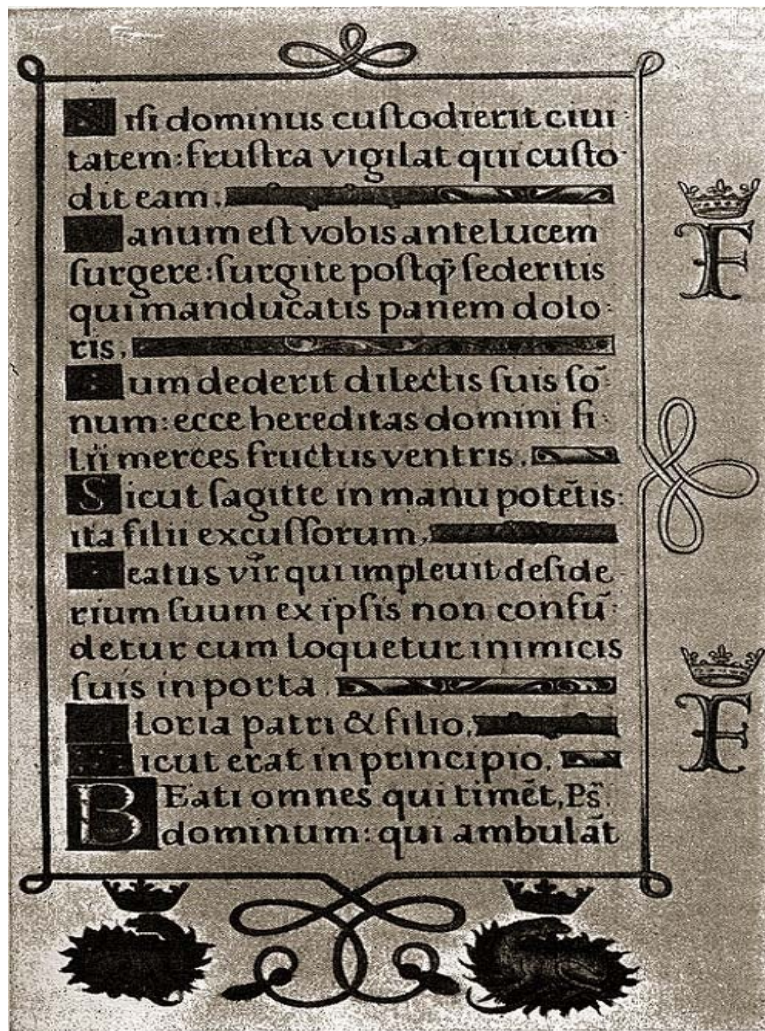 Niſi dominus cuſtodierit ciui-
tatem: fruſtra vigilat qui cuſto-
dit eam.
Vanum eſt vobis ante lucem
ſurgere: ſurgite poſtꝙ ſederitis
qui manducatis panem dolo-
ris.
Cum dederit dilectis ſuis ſō-
num: ecce hereditas domini fi-
lii merces fructus ventris.
Sicut ſagitte in manu potētis:
ita filii excuſſorum.
Beatus vir qui impleuit deſide
rium ſuum ex ipſis non confū-
detur cum loquetur inimicis
ſuis in porta.
Gloria patri & filio.
Sicut erat in principio.
BEati omnes qui timēt, Ps̄.
dominum: qui ambulāt
F
F